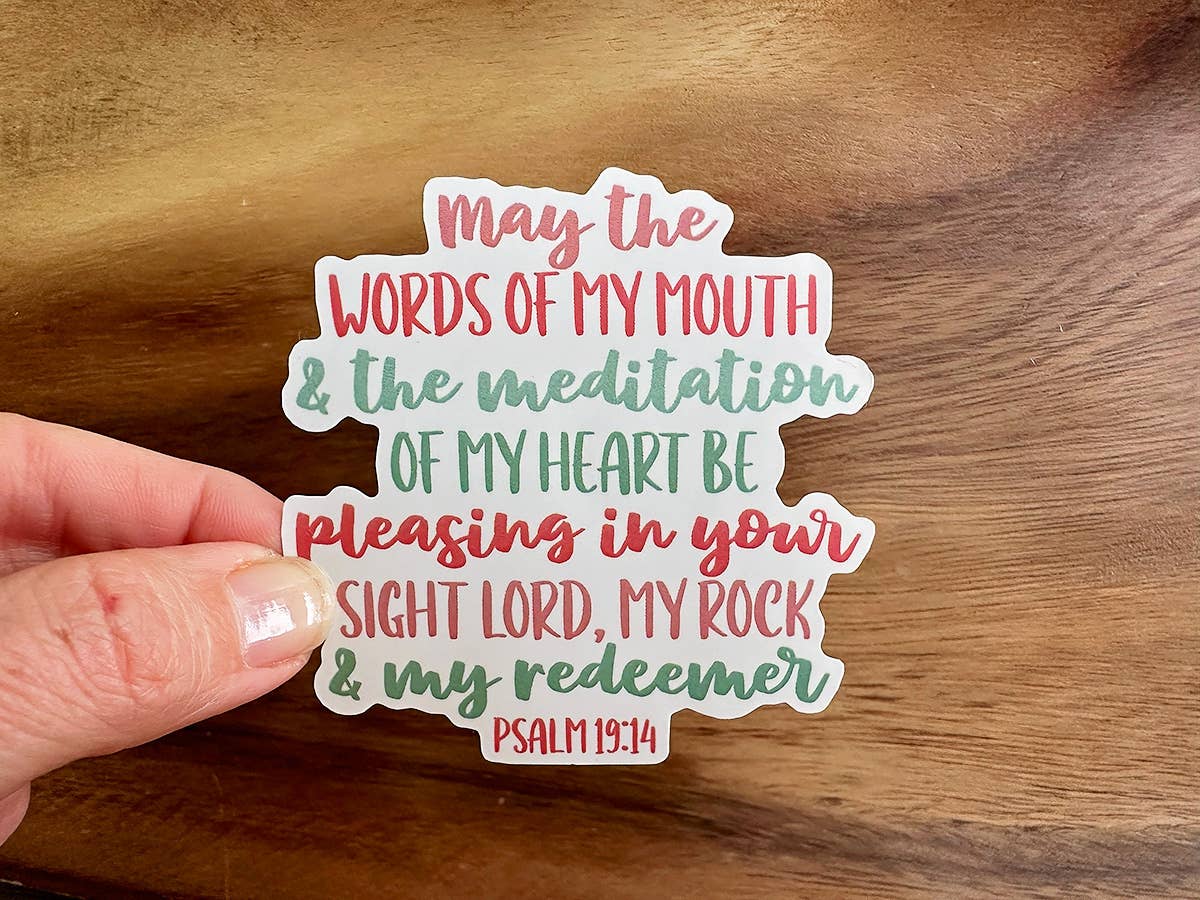 may the
WORDS OF MY MOUTH
& the meditation
OF MY HEART BE
pleasing in your
SIGHT LORD, MY ROCK
& my redeemer
PSALM 19:14